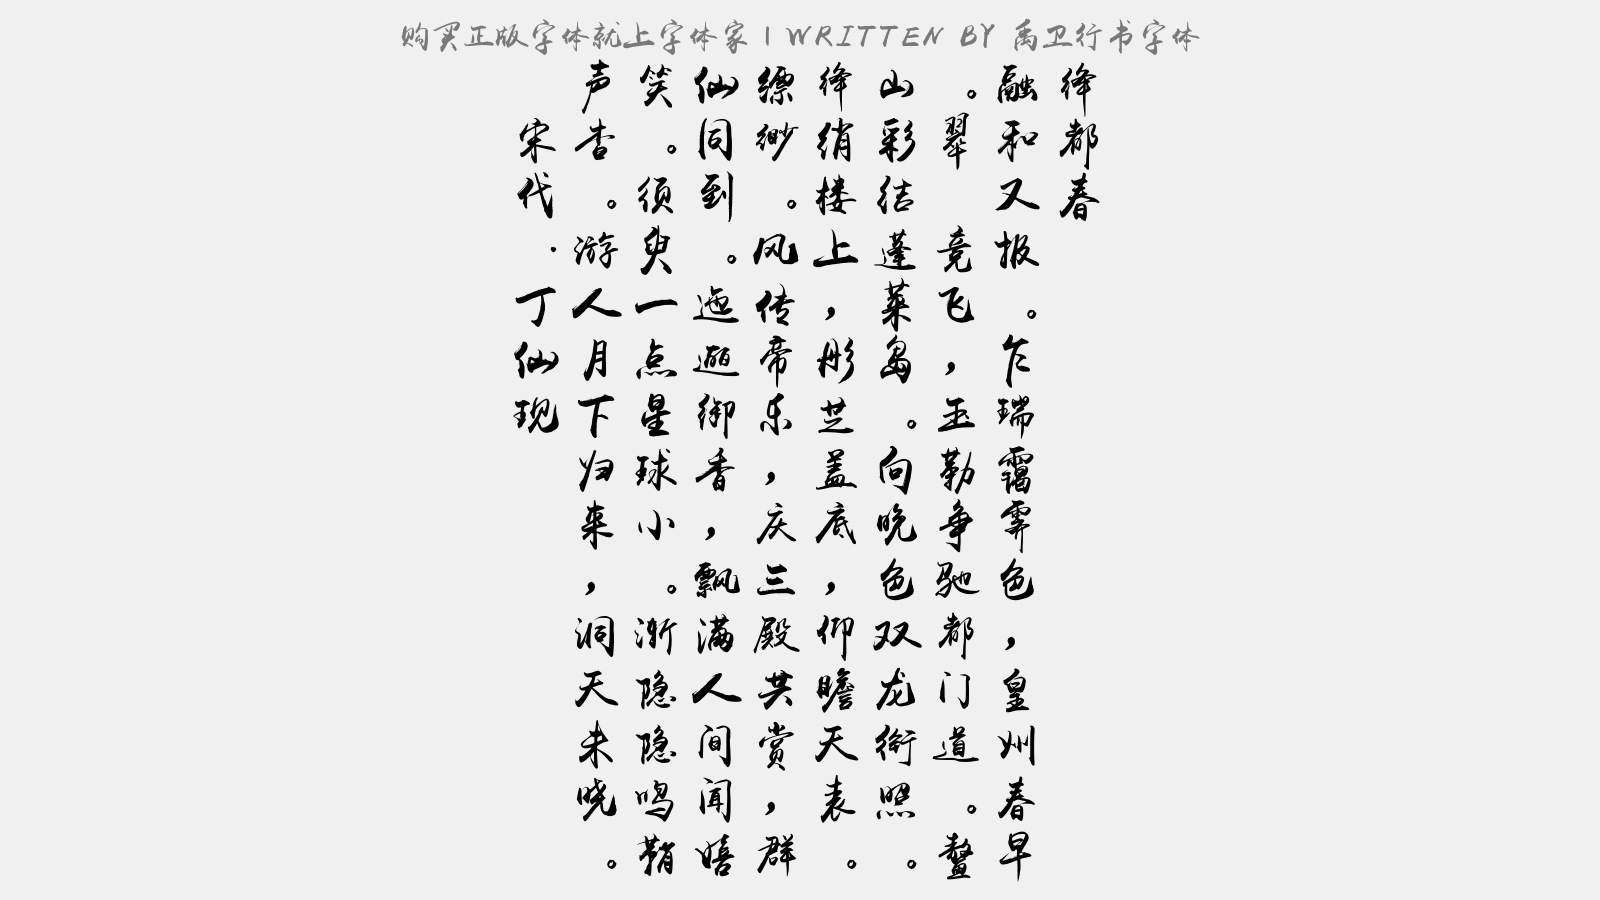 购买正版字体就上字体家 | WRITTEN BY 禹卫行书字体
绛都春
融和又报。乍瑞霭霁色，皇州春早
。翠 竞飞，玉勒争驰都门道。鳌
山彩结蓬莱岛。向晚色双龙衔照。
绛绡楼上，彤芝盖底，仰瞻天表。
缥缈。风传帝乐，庆三殿共赏，群
仙同到。迤逦御香，飘满人间闻嬉
笑。须臾一点星球小。渐隐隐鸣鞘
声杳。游人月下归来，洞天未晓。
宋代·丁仙现